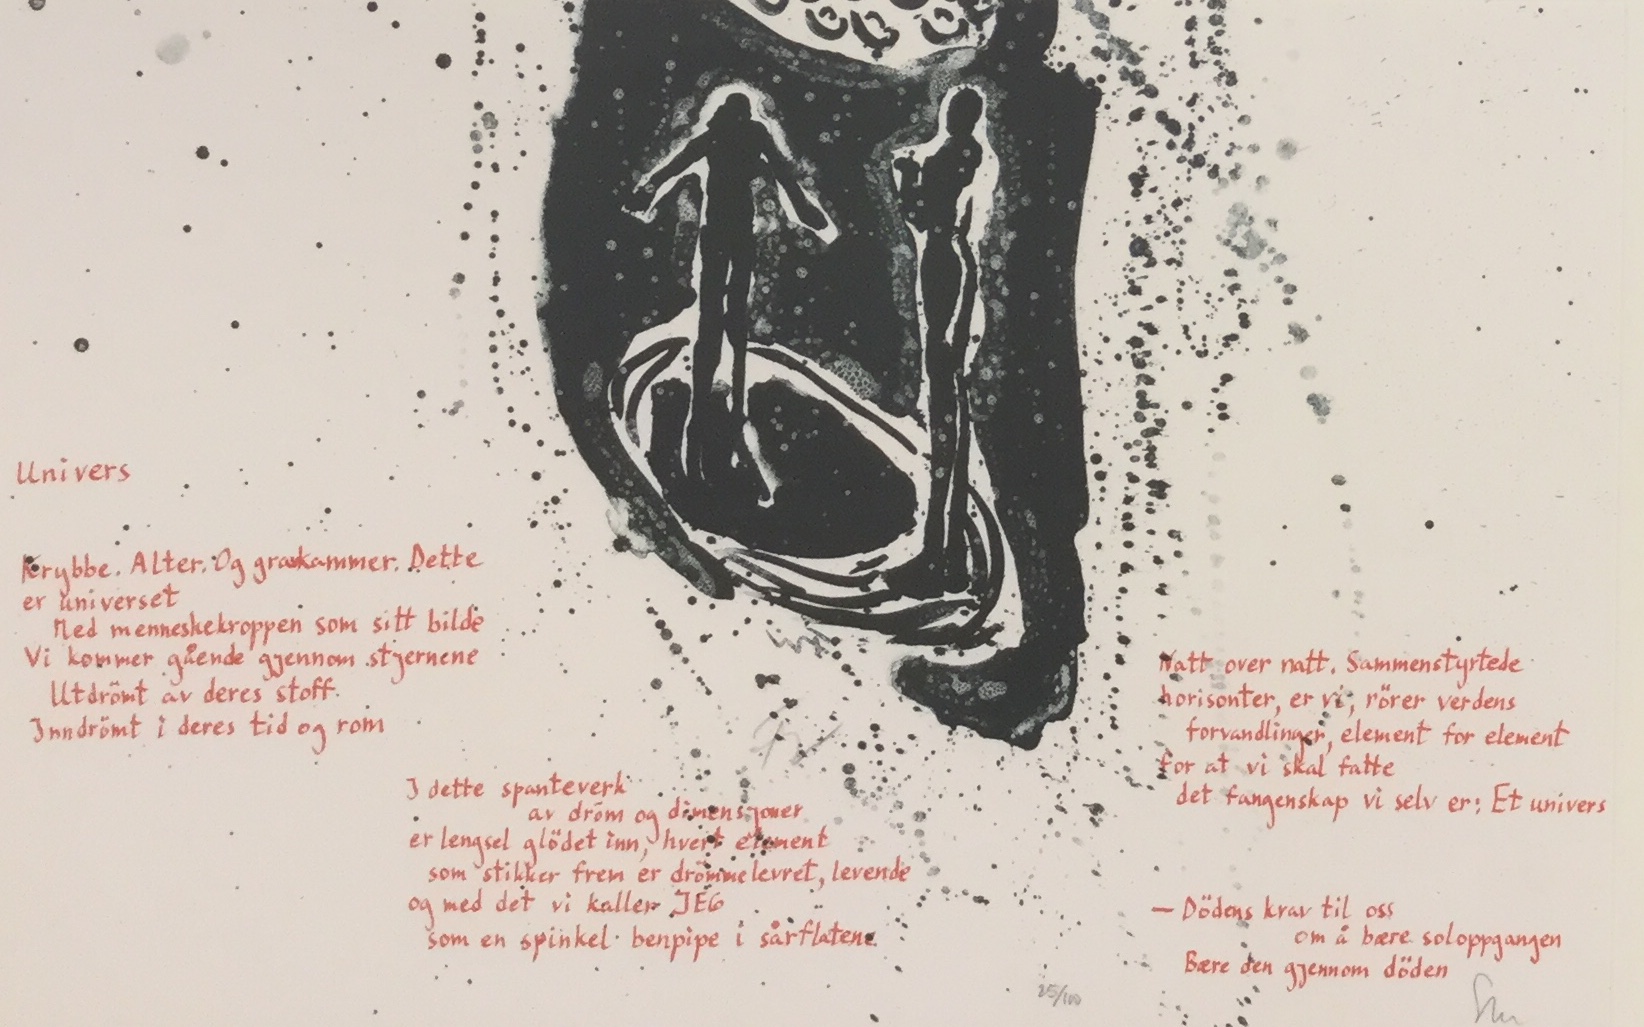 Univers
Krybbe. Alter. Og gravkammer. Dette
er universet
Med menneskekroppen som sitt bilde
Vi kommer gående gjennom stjernene
Utdrömt av deres stoff.
Inndrömt i deres tid og rom
I dette spanteverk
av dröm og dimensjoner
er lengsel glödet inn, hvert element
som stikker frem er drömmelevret, levende
og med det vi kaller JEG
som en spinkel benpipe i sårflatene
Natt over natt. Sammenstyrtede
horisonter, er vi, rörer verdens
forvandlinger, element for element
for at vi skal fatte
det fangenskap vi selv er: Et univers
— Dödens krav til oss
om å bære soloppgangen
Bære den gjennom döden
25/100